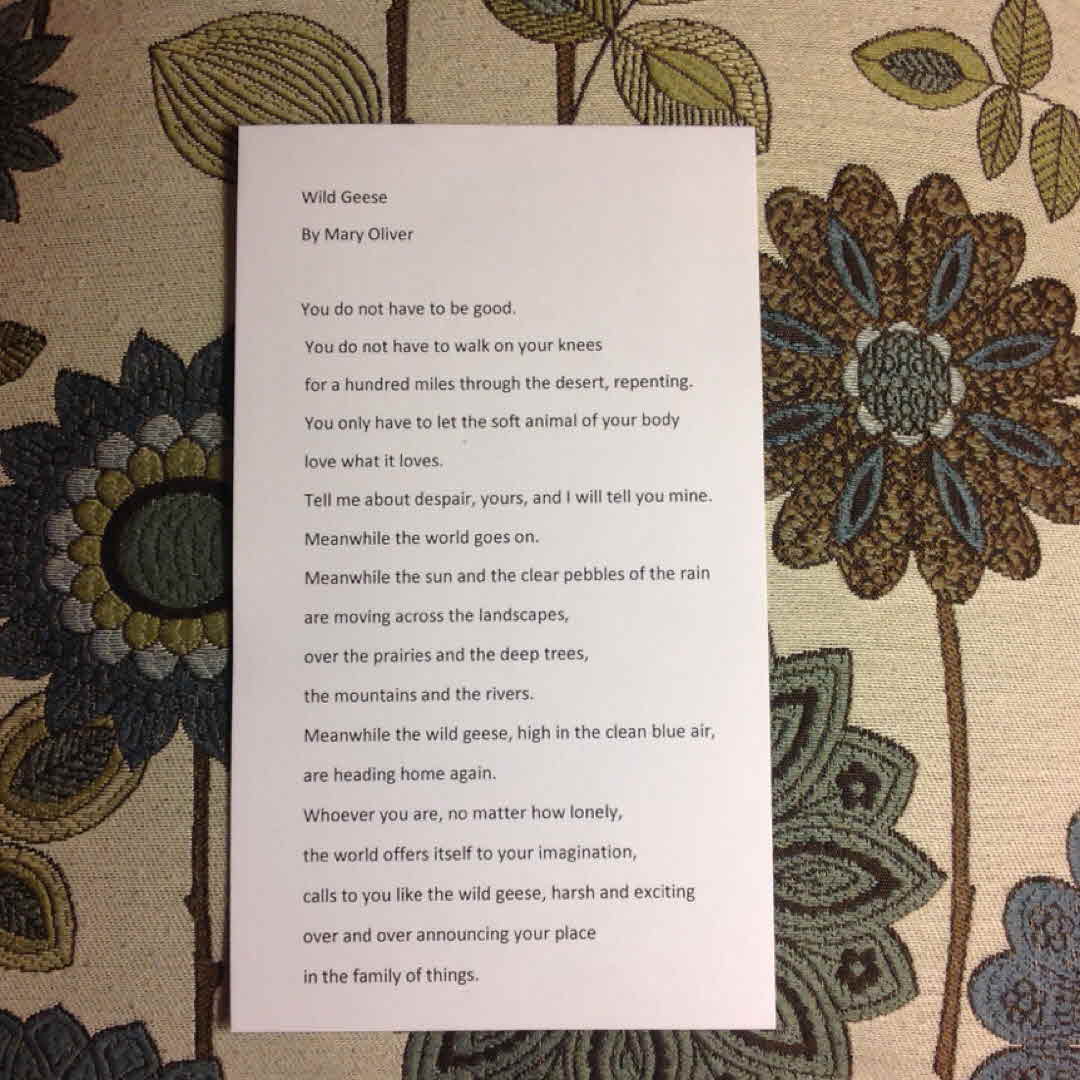 Wild Geese
By Mary Oliver
You do not have to be good.
You do not have to walk on your knees
for a hundred miles through the desert, repenting.
You only have to let the soft animal of your body
love what it loves.
Tell me about despair, yours, and I will tell you mine.
Meanwhile the world goes on.
Meanwhile the sun and the clear pebbles of the rain
are moving across the landscapes,
over the prairies and the deep trees,
the mountains and the rivers.
Meanwhile the wild geese, high in the clean blue air,
are heading home again.
Whoever you are, no matter how lonely,
the world offers itself to your imagination,
calls to you like the wild geese, harsh and exciting
over and over announcing your place
in the family of things.